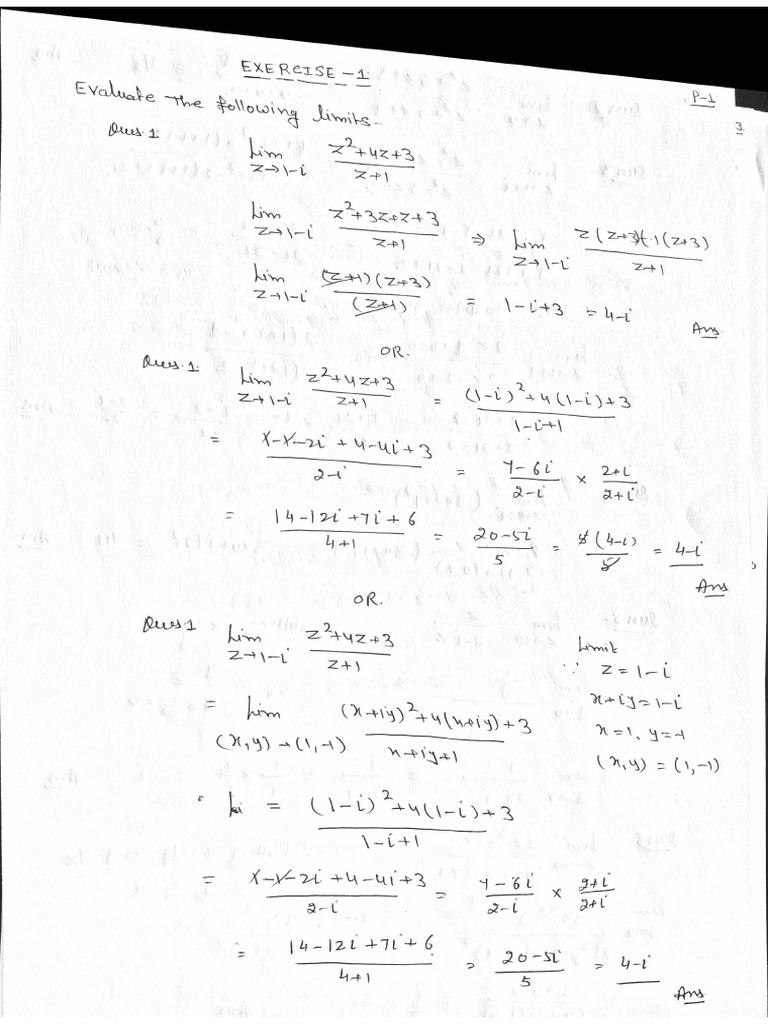 EXERCISE-1
P-1
3
Evaluate the following limits-
Ques.1. lim z→1-i (z²+4z+3)/(z+1)
lim z→1-i (z²+3z+z+3)/(z+1) ⇒ lim z→1-i (z(z+3)+1(z+3))/(z+1)
lim z→1-i ((z+1)(z+3))/((z+1)) = 1-i+3 = 4-i
Ans
OR.
Ques.1. lim z→1-i (z²+4z+3)/(z+1) = ((1-i)²+4(1-i)+3)/(1-i+1)
= (1-1-2i+4-4i+3)/(2-i) = (7-6i)/(2-i) × (2+i)/(2+i)
= (14-12i+7i+6)/(4+1) = (20-5i)/5 = 5(4-i)/5 = 4-i
Ans
OR.
Ques1 lim z→1-i (z²+4z+3)/(z+1)
Limit
∵ z=1-i
x+iy=1-i
x=1, y=-1
(x,y)=(1,-1)
= lim (x,y)→(1,-1) ((x+iy)²+4(x+iy)+3)/(x+iy+1)
= ((1-i)²+4(1-i)+3)/(1-i+1)
= (1-1-2i+4-4i+3)/(2-i) = (7-6i)/(2-i) × (2+i)/(2+i)
= (14-12i+7i+6)/(4+1) = (20-5i)/5 = 4-i
Ans